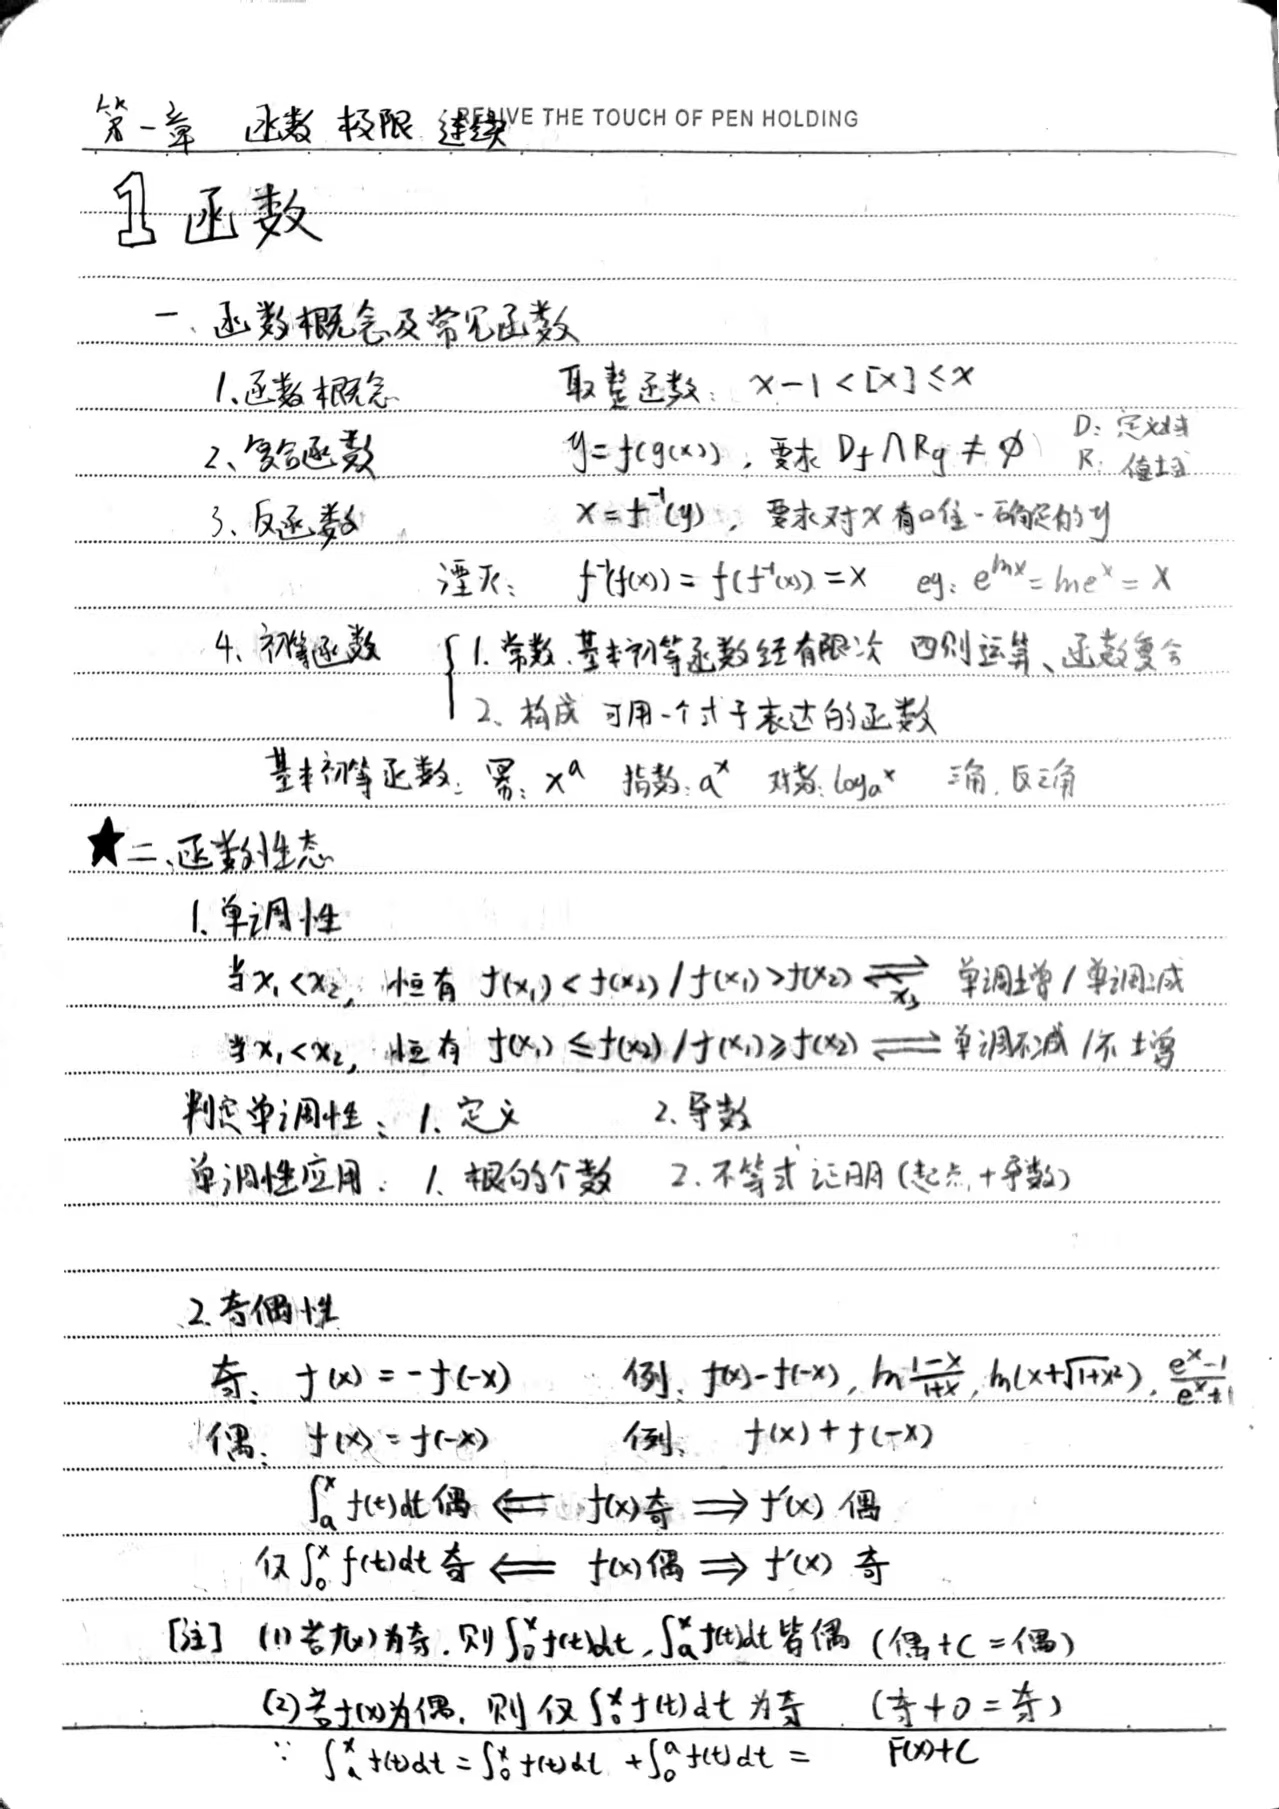 第一章 函数 极限 连续 RELIVE THE TOUCH OF PEN HOLDING
1 函数
一、函数概念及常见函数
1、函数概念 取整函数: x-1<[x]≤x
2、复合函数 y=f(g(x)), 要求 Df∩Rg≠∅ D: 定义域 R: 值域
3、反函数 x=f⁻¹(y), 要求对x有唯一确定的y
湮灭: f⁻¹(f(x))=f(f⁻¹(x))=x eg: e^{lnx}=lne^x=x
4、初等函数 { 1、常数、基本初等函数经有限次 四则运算、函数复合
2、构成 可用一个式子表达的函数
基本初等函数: 幂: x^a 指数: a^x 对数: log_a x 三角、反三角
★二、函数性态
1、单调性
当x₁<x₂, 恒有 f(x₁)<f(x₂)/f(x₁)>f(x₂) ⇌ 单调增/单调减
当x₁<x₂, 恒有 f(x₁)≤f(x₂)/f(x₁)≥f(x₂) ⇌ 单调不减/不增
判定单调性: 1、定义 2、导数
单调性应用: 1、根的个数 2、不等式证明(起点+导数)
2、奇偶性
奇: f(x)=-f(-x) 例: f(x)-f(-x), ln(1-x)/(1+x), ln(x+√(1+x²)), (e^x-1)/(e^x+1)
偶: f(x)=f(-x) 例: f(x)+f(-x)
∫_a^x f(t)dt 偶 ⇐ f(x)奇 ⇒ f′(x) 偶
仅∫_0^x f(t)dt 奇 ⇐ f(x)偶 ⇒ f′(x) 奇
[注] (1)若f(x)为奇, 则∫_0^x f(t)dt, ∫_a^x f(t)dt皆偶 (偶+C=偶)
(2)若f(x)为偶, 则仅∫_0^x f(t)dt为奇 (奇+0=奇)
∵ ∫_a^x f(t)dt=∫_0^x f(t)dt+∫_0^a f(t)dt= F(x)+C